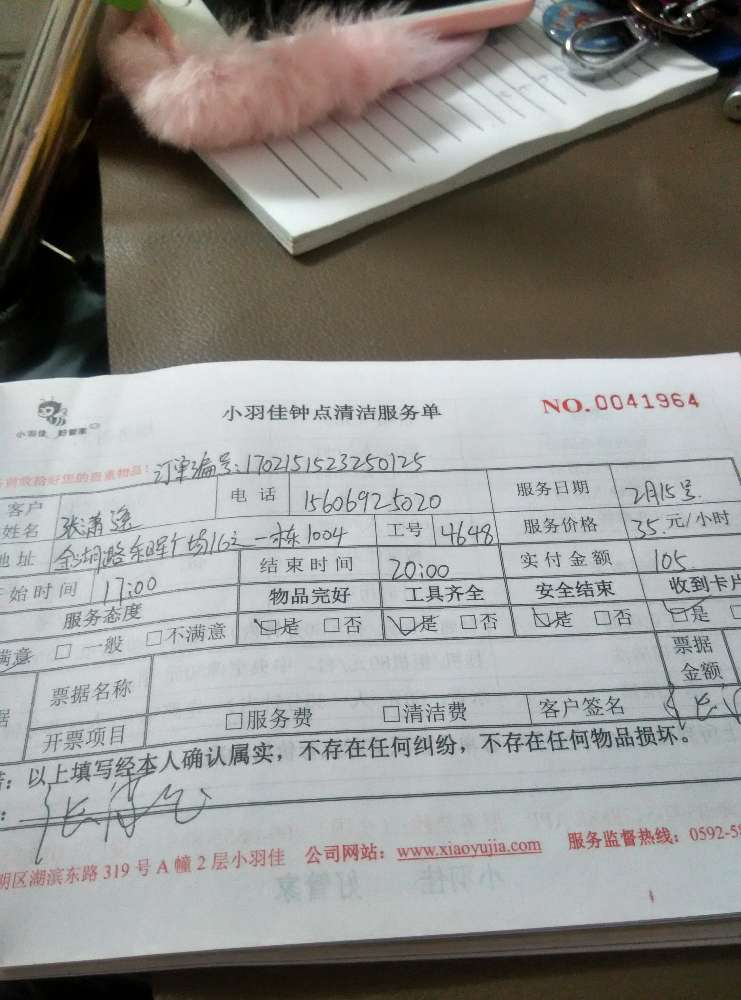 小羽佳 好管家
小羽佳钟点清洁服务单
NO.0041964
订单编号:170215152325012​5
客户姓名 张潇 电话 15606925020 服务日期 2月15号
地址 金湖路东晖广场16之一栋1004 工号 4648 服务价格 35.元/小时
始时间 17:00 结束时间 20:00 实付金额 105
服务态度 物品完好 工具齐全 安全结束 收到卡片
满意 □ 一般 □不满意 ☑是 □否 ☑是 □否 ☑是 □否 ☑是 □
据 票据名称 票据金额
开票项目 □服务费 □清洁费 客户签名
:以上填写经本人确认属实,不存在任何纠纷,不存在任何物品损坏。
明区湖滨东路 319 号 A 幢 2 层小羽佳 公司网站:www.xiaoyujia.com 服务监督热线:0592-58